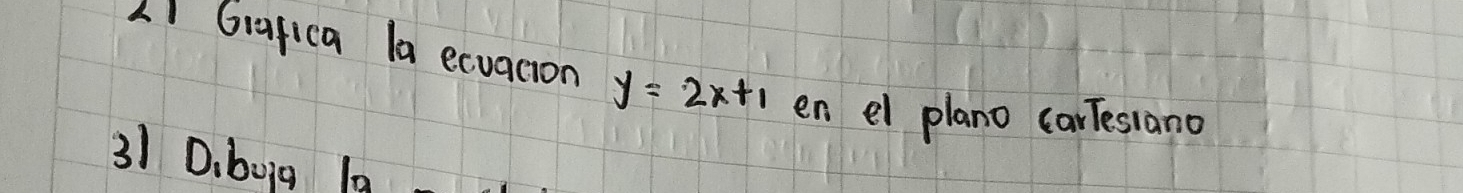 2) Grafica la ecuacion y = 2x+1 en el plano carTesiano
3) Dibuja la